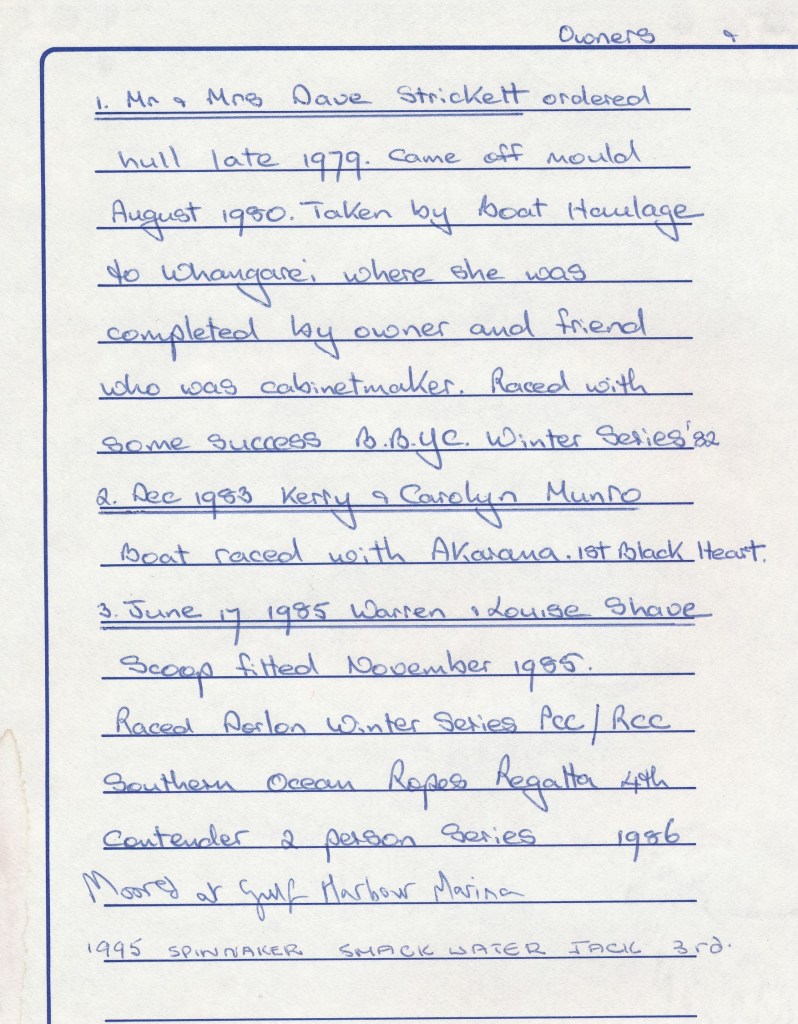 Owners &
1. Mr & Mrs Dave Strickett ordered
hull late 1979. Came off mould
August 1980. Taken by Boat Haulage
to Whangarei, where she was
completed by owner and friend
who was cabinetmaker. Raced with
some success B.B.Y.C. Winter Series '82
2. Dec 1983 Kerry & Carolyn Munro
Boat raced with Akarana. 1st Black Heart.
3. June 17 1985 Warren & Louise Shave
Scoop fitted November 1985.
Raced Dorlon Winter Series PCC / RCC
Southern Ocean Ropes Regatta 4th
Contender 2 person Series 1986
Moored at Gulf Harbour Marina
1995 SPINNAKER SMACK WATER JACK 3rd.